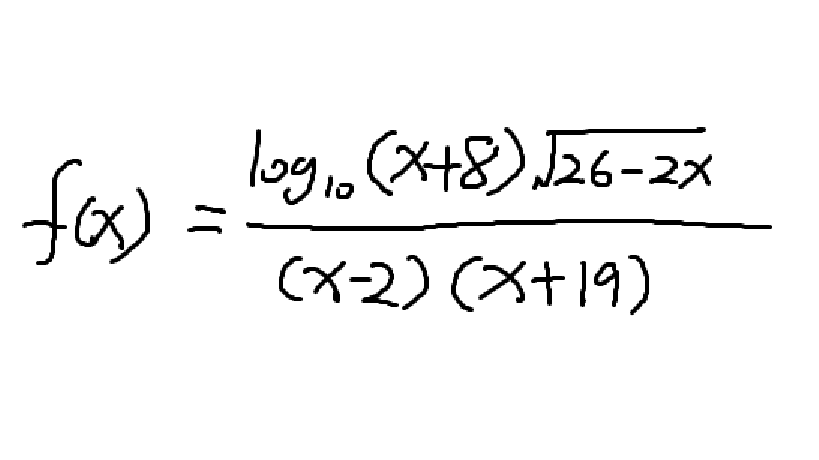 f(x) = \frac{\log_{10}(x+8)\sqrt{26-2x}}{(x-2)(x+19)}